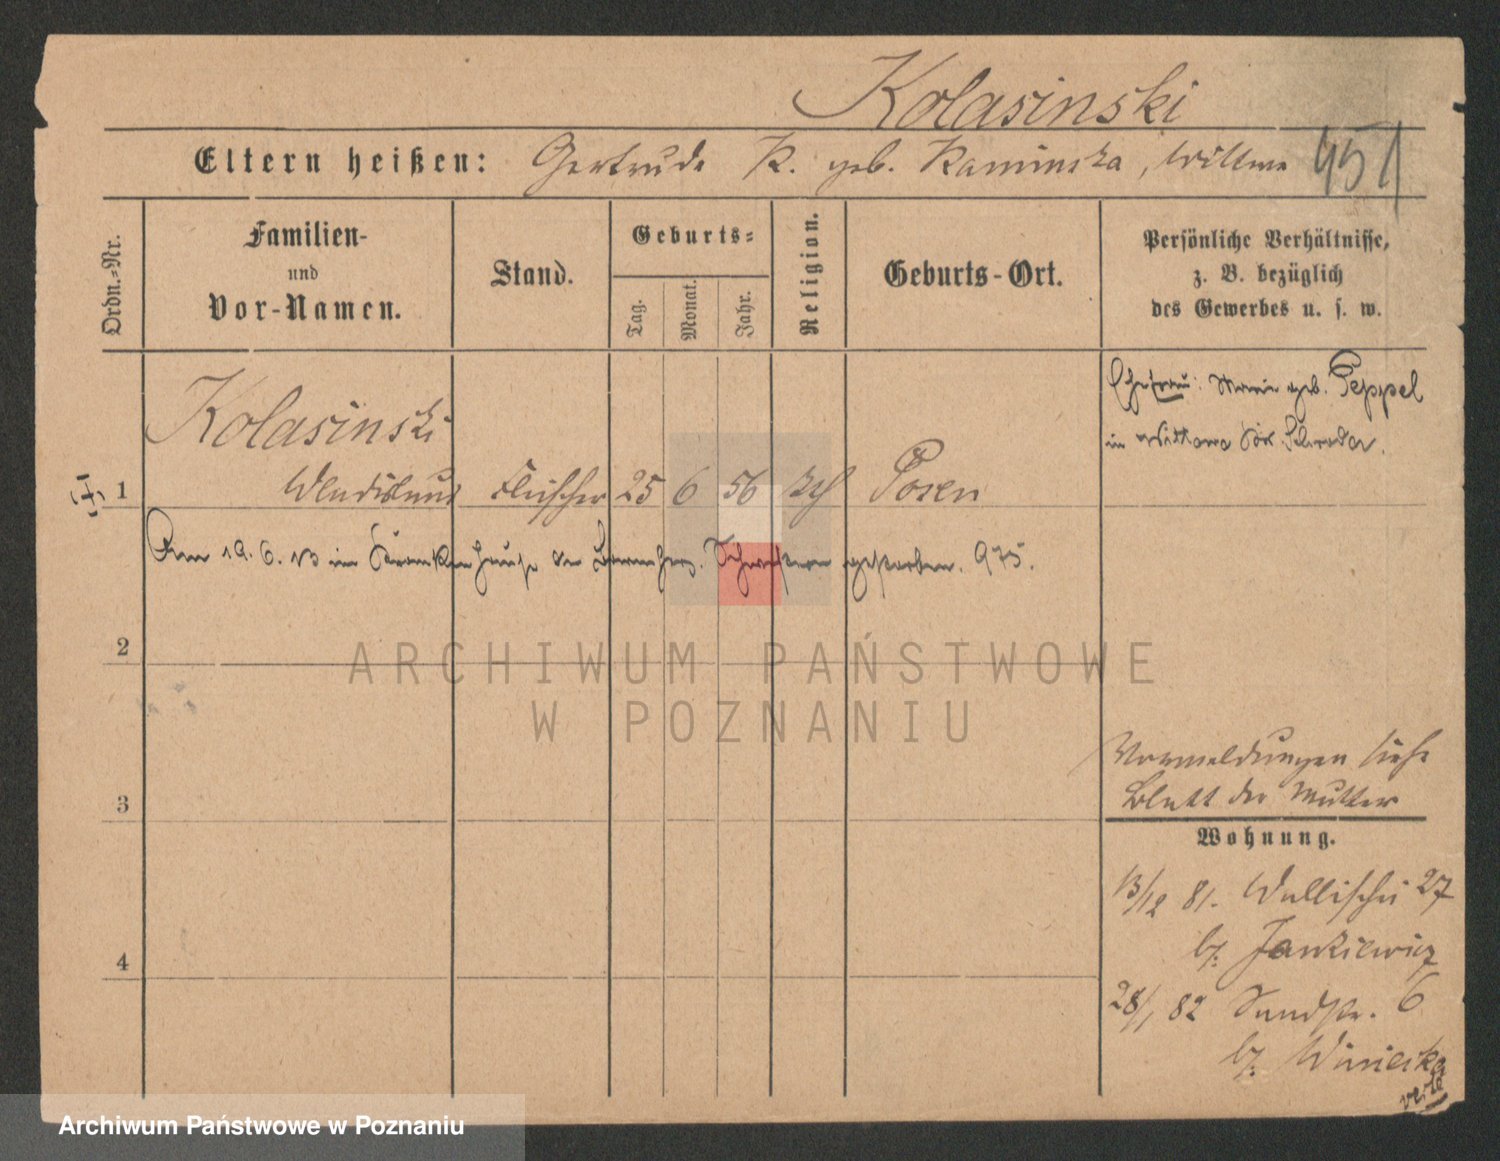 Kolasinski
Eltern heißen: Gertrude K. geb. Kaminska, Wittwe 451
Ordn.-Nr.
Familien-
und
Vor-Namen.
Stand.
Geburts-
Tag.
Monat.
Jahr.
Religion.
Geburts-Ort.
Persönliche Verhältnisse,
z. B. bezüglich
des Gewerbes u. s. w.
Ehefrau: Marie geb. Peppel
in
Kolasinski
1 Fleischer 25 6 56 kh Posen
Am 19. 6. 13 im Krankenhause der Barmherz. Schwestern gestorben. 975.
2
3
4
Vormeldungen siehe
Blatt der Mutter
Wohnung.
13/12 81. Wallischei 27
b/. Jankiewicz
28/1 82 Sandstr. 6
b/.
ARCHIWUM PAŃSTWOWE
W POZNANIU
Archiwum Państwowe w Poznaniu